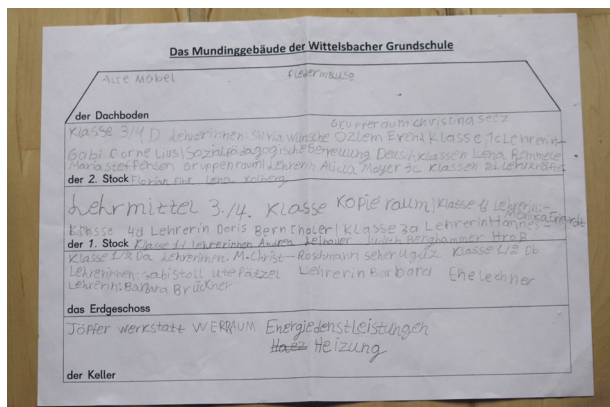 Das Mundinggebäude der Wittelsbacher Grundschule
Alte Möbel fledermäuse
der Dachboden
Grupperaum christina seez
Klasse 3/4 D Lehrerinnen: Silvia wünsche Özlem Evenz Klasse 1c Lehrerin-
Gabi Cornelius| Sozialpädagogische Betreuung Deuschklassen Lena
Maria steffensen Gruppenraum| Lehrerin Alicia Mayer 3c Klassen 2d Lehrkräfte:
der 2. Stock Florian Fink Lena Kolberg
Lehrmittel 3./4. Klasse Kopieraum| Klasse 1b Lehrerin:-
Monika Engardt
Klasse 4d Lehrerin Doris Bernthaler| Klasse 3a Lehrerin Hannes-
der 1. Stock Klasse 1/ lehrerinnen Andrea Judith Berghammer Straß
Klasse 1/2 Da Lehrerinnen: M.Christ-Roshmann seher Uguz Klasse 1/2 Db
Lehrerinnen: Gabi stoll ute Pätzel Lehrerin Barbara Ehelechner
Lehrerin: Barbara Brückner
das Erdgeschoss
Töpfer werkstatt WERRAUM Energiedenstleistungen
Heizung
der Keller